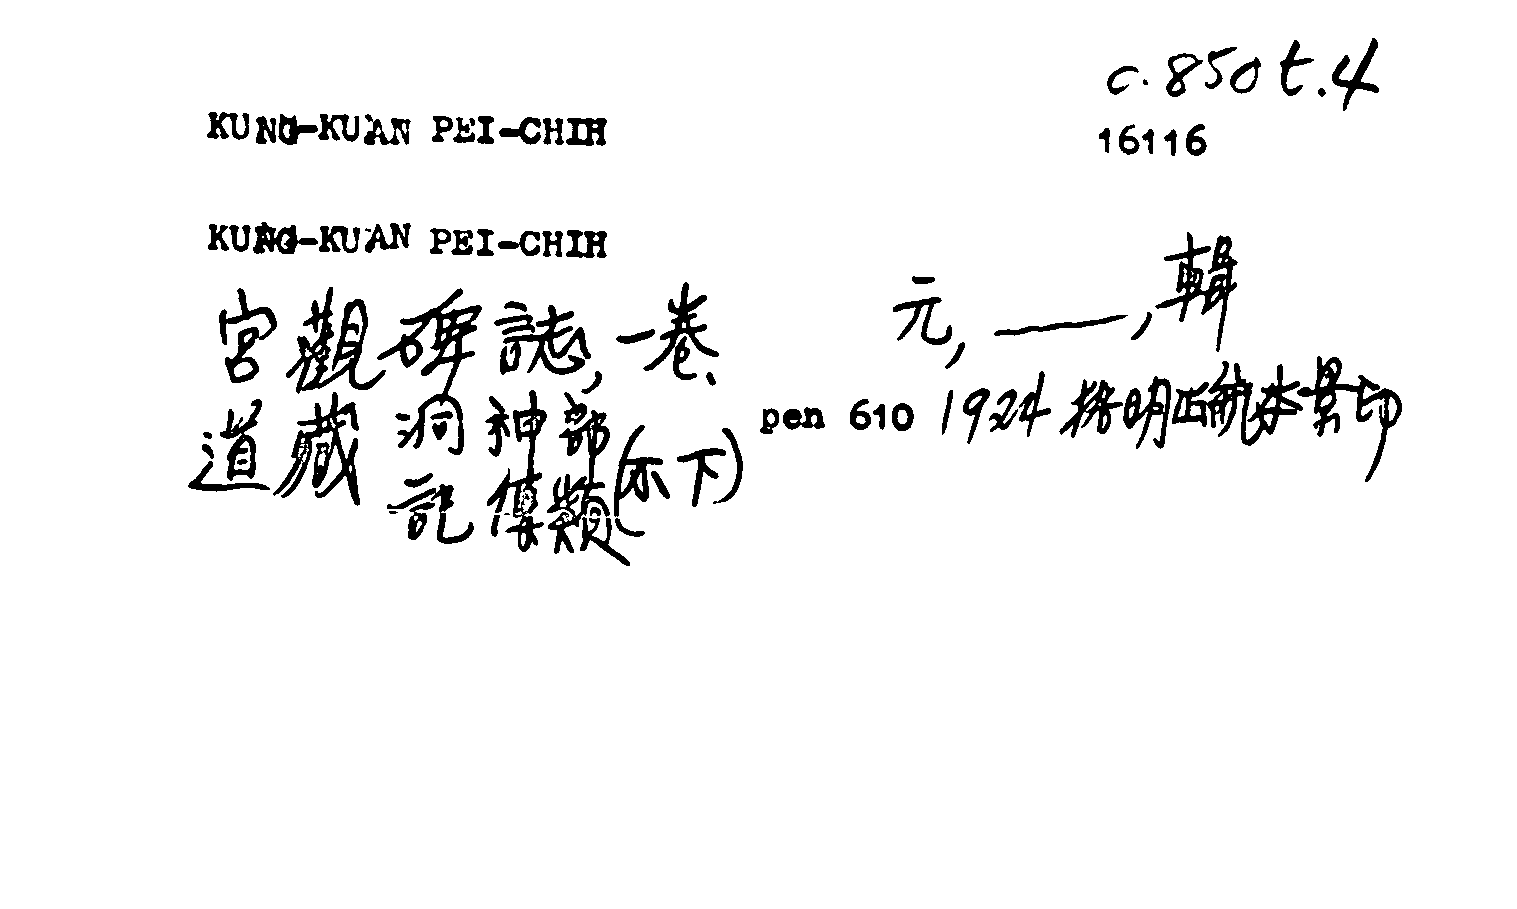 c.850 t.4
KUNG-KUAN PEI-CHIH
16116
KUNG-KUAN PEI-CHIH
宮觀碑誌,一卷、 元,——,輯
道藏 洞神部 記傳類(不下) pen 610 1924 據明正統本景印